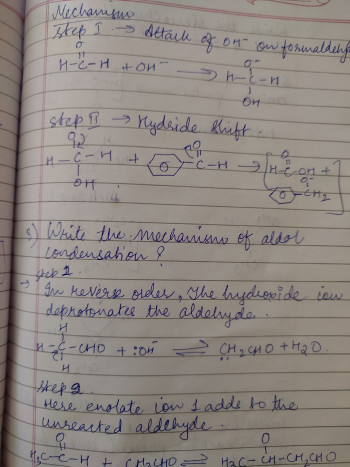 Mechanism
Step I → Attack of OH⁻ on formaldehy
H-C-H + OH⁻ → H-C-H
O
O⁻
OH
Step II → Hydride shift.
H-C-H + C-H → H-C-OH +
OH
O
CH₂
8) Write the mechanism of aldol
condensation?
Step 1
→ In reverse order, The hydroxide ion
deprotonates the aldehyde.
H
H-C-CHO + :OH ⇌ CH₂CHO + H₂O.
H
Step 2
Here enolate ion 1 adds to the
unreacted aldehyde.
O
H₃C-C-H + CH₂CHO ⇌ H₃C-CH-CH₂CHO